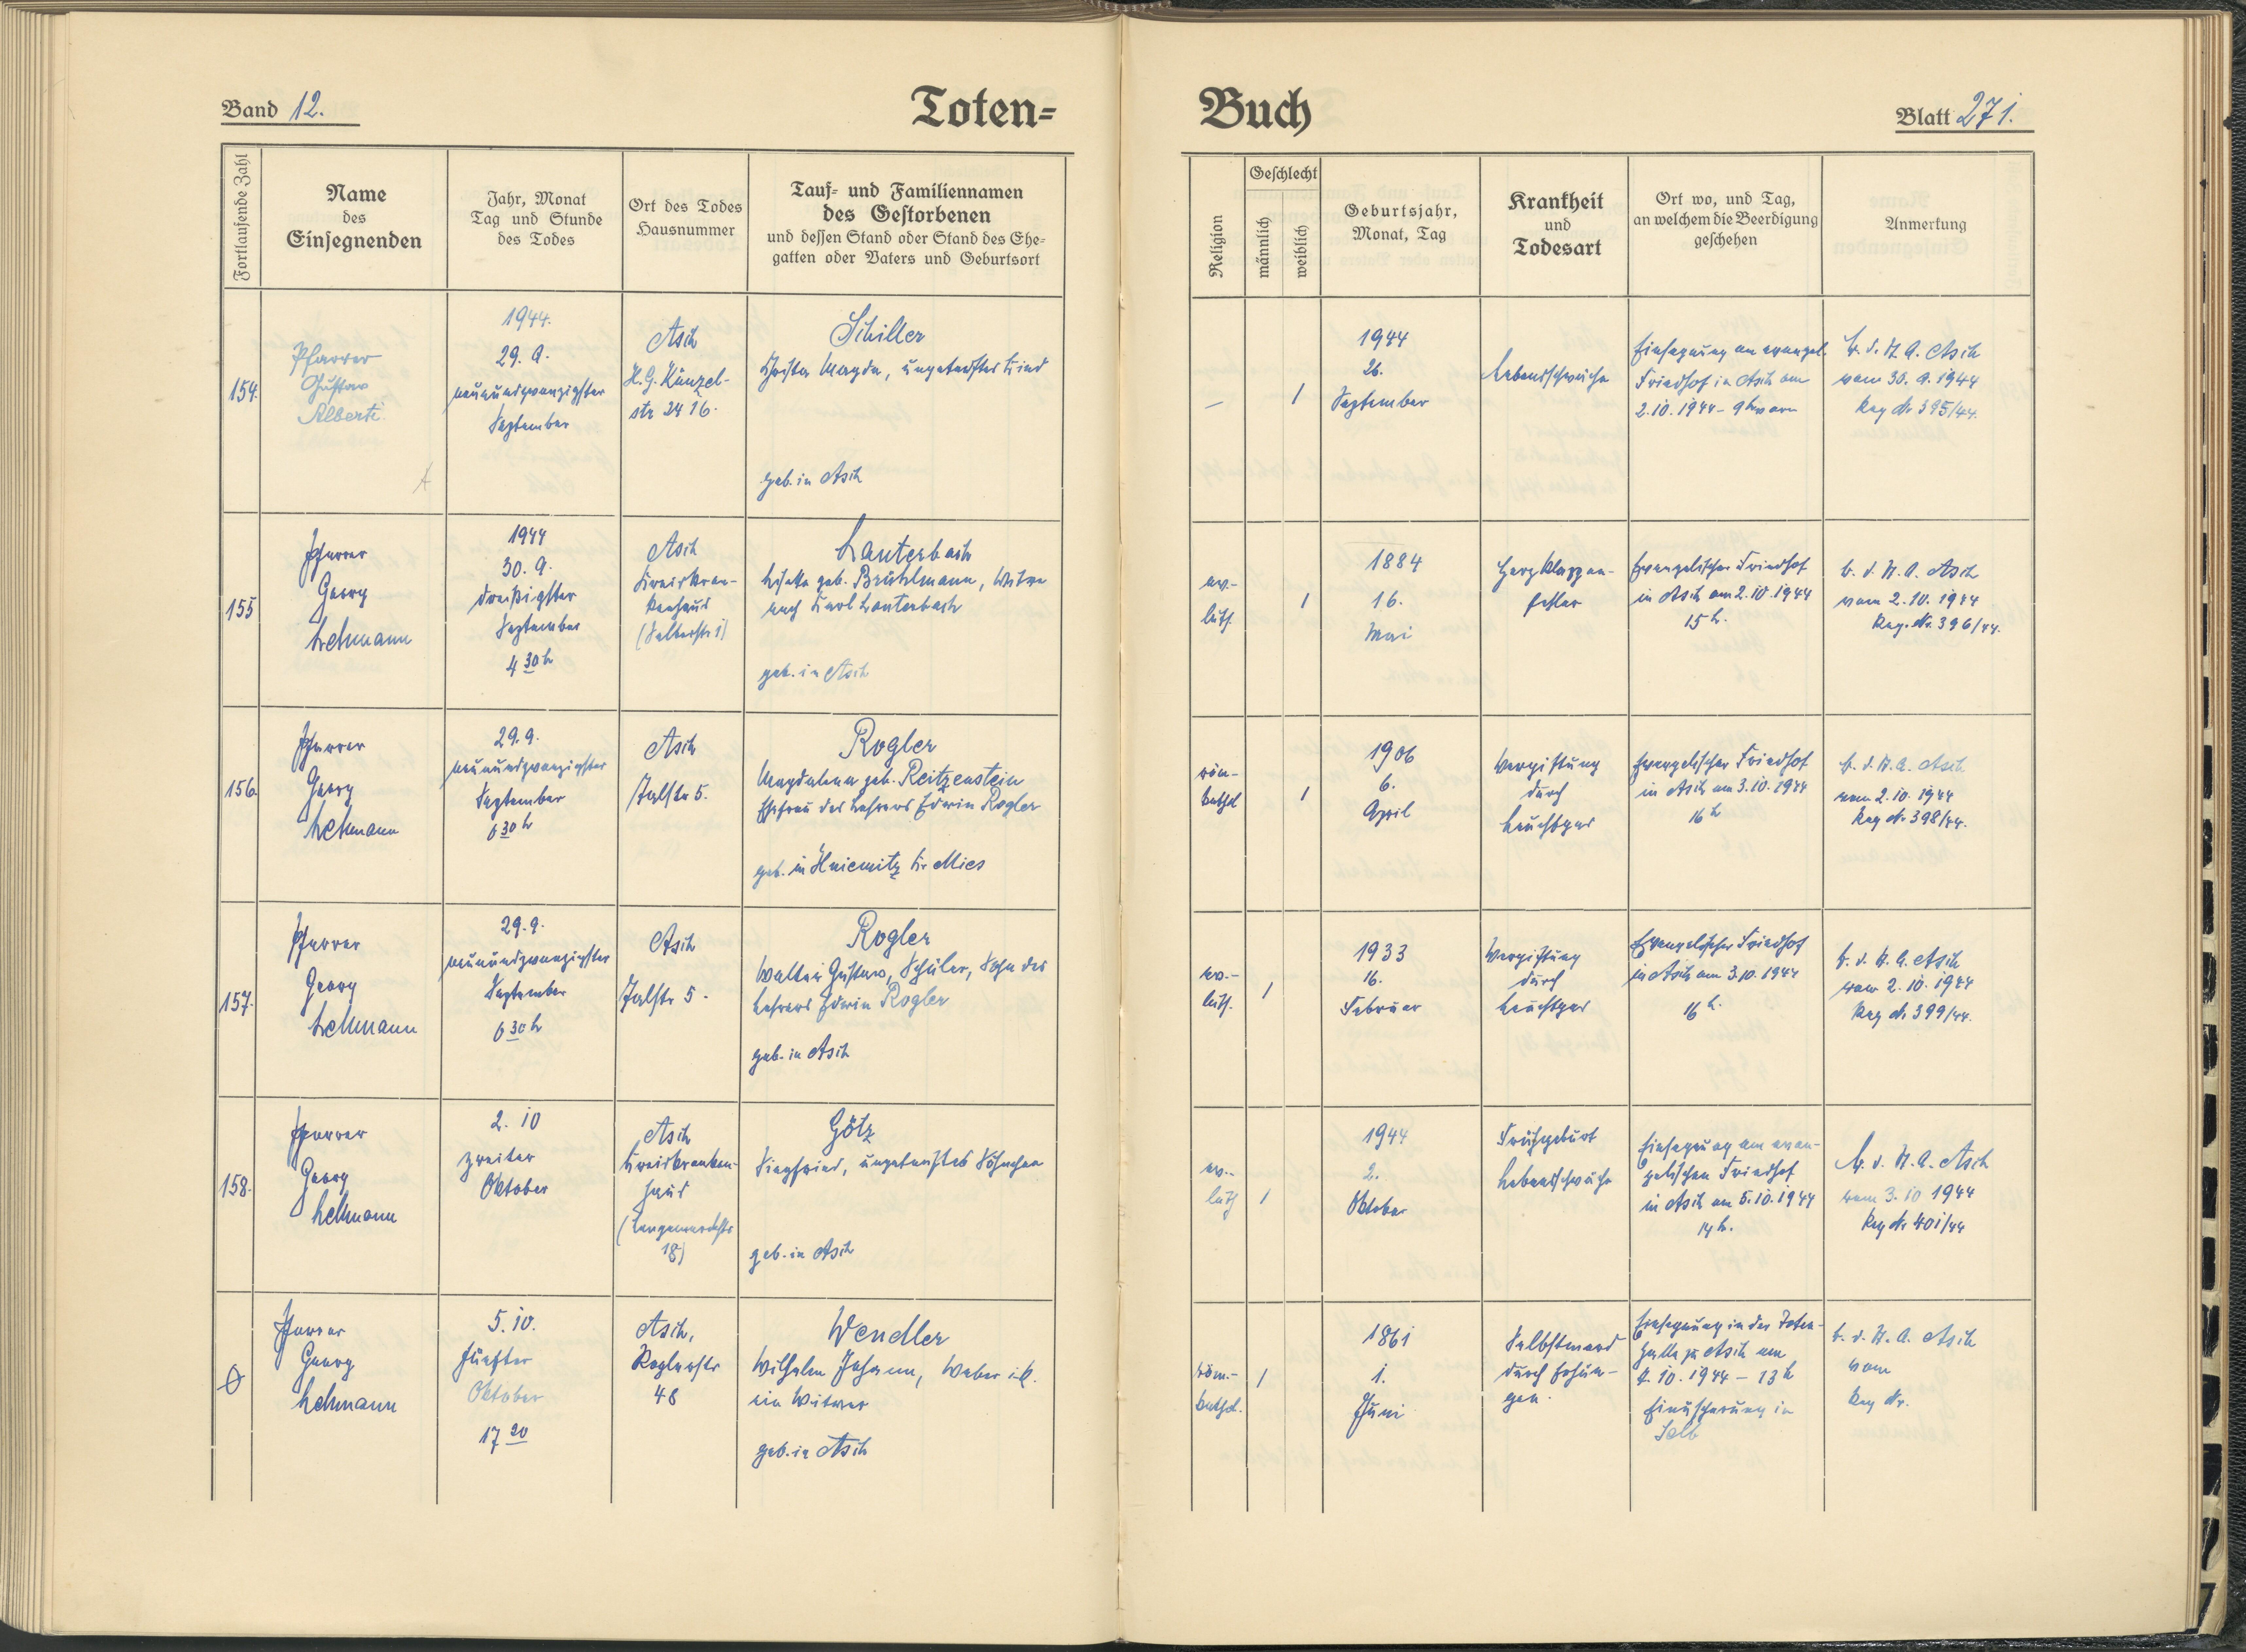 Band 12.
Toten=
Fortlaufende Zahl
Name
des
Einsegnenden
Jahr, Monat
Tag und Stunde
des Todes
Ort des Todes
Hausnummer
Tauf= und Familiennamen
des Gestorbenen
und dessen Stand oder Stand des Ehe=
gatten oder Vaters und Geburtsort
154.
Pfarrer
Gustav
Alberti
1944.
29. 9.
neunundzwanzigster
September
Asch
H. G. Künzel-
str 2416.
Schiller
Christa Magda, ungetauftes Kind
geb. in Asch
155
Pfarrer
Georg
Lehmann
1944
30. 9.
dreißigster
September
4 30 h
Asch
Kreiskran-
kenhaus
(Selberstr 1)
Lauterbach
Lisette geb. Brühlmann, Witwe
nach Karl Lauterbach
geb. in Asch
156.
Pfarrer
Georg
Lehmann
29. 9.
neunundzwanzigster
September
6 30 h
Asch
Talstr 5.
Rogler
Magdalena geb. Reitzenstein
Ehefrau des Lehrers Edwin Rogler
geb. in Hniemitz Kr. Mies
157.
Pfarrer
Georg
Lehmann
29. 9.
neunundzwanzigster
September
6 30 h
Asch
Talstr 5.
Rogler
Walter Gustav, Schüler, Sohn des
Lehrers Edwin Rogler
geb. in Asch
158.
Pfarrer
Georg
Lehmann
2. 10
zweiter
Oktober
Asch
Kreiskranken-
haus
(Langemarckstr
18)
Götz
Siegfried, ungetauftes Söhnchen
geb. in Asch
Ø
Pfarrer
Georg
Lehmann
5. 10.
fünfter
Oktober
17 20
Asch,
Roglerstr
48
Wendler
Wilhelm Johann, Weber i. R.
ein Witwer
geb. in Asch
Buch
Blatt 271.
Religion
Geschlecht
männlich
weiblich
Geburtsjahr,
Monat, Tag
Krankheit
und
Todesart
Ort wo, und Tag,
an welchem die Beerdigung
geschehen
Anmerkung
–
1
1944
26.
September
Lebensschwäche
Einsegnung am evangel.
Friedhof in Asch am
2. 10. 1944 - 9h vorm
B. d. St. A. Asch
vom 30. 9. 1944
Reg Nr 395/44.
ev.-
luth.
1
1884
16.
Mai
Herzklappen-
fehler
Evangelischer Friedhof
in Asch am 2. 10. 1944
15 h.
B. d. St. A. Asch
vom 2. 10. 1944
Reg. Nr. 396/44.
röm-
kathol
1
1906
6.
April
Vergiftung
durch
Leuchtgas
Evangelischer Friedhof
in Asch am 3. 10. 1944
16 h
B. d. St. A. Asch
vom 2. 10. 1944
Reg Nr 398/44.
ev.-
luth.
1
1933
16.
Februar
Vergiftung
durch
Leuchtgas
Evangelischer Friedhof
in Asch am 3. 10. 1944
16 h.
B. d. St. A. Asch
vom 2. 10. 1944
Reg Nr 399/44.
ev.-
luth
1
1944
2.
Oktober
Frühgeburt
Lebensschwäche
Einsegnung am evan-
gelischen Friedhof
in Asch am 5. 10. 1944
14 h.
B. d. St. A. Asch
vom 3. 10 1944
Reg Nr 401/44
röm.-
kathol.
1
1861
1.
Juni
Selbstmord
durch Erhän-
gen.
Einsegnung in der Toten-
halle zu Asch am
9. 10. 1944 - 13 h
Einäscherung in
Selb
B. d. St. A. Asch
vom
Reg Nr.